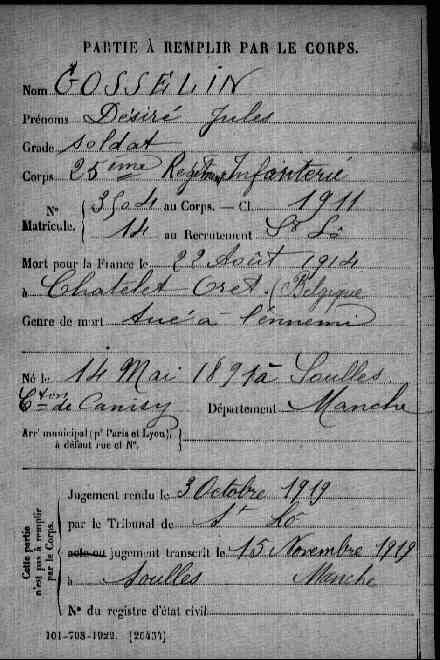 PARTIE À REMPLIR PAR LE CORPS.
Nom GOSSELIN
Prénoms Désiré Jules
Grade soldat
Corps 25ème Régiment Infanterie
N° Matricule. { 3504 au Corps. — Cl. 1911
14 au Recrutement St Lô
Mort pour la France le 22 Août 1914
à Chatelet Oret (Belgique
Genre de mort tué à l'ennemi
Né le 14 Mai 1891 à Soulles
Cton de Canisy Département Manche
Arrt municipal (pr Paris et Lyon), }
à défaut rue et N°.
Cette partie n'est pas à remplir par le Corps.
Jugement rendu le 3 Octobre 1919
par le Tribunal de St Lô
acte ou jugement transcrit le 15 Novembre 1919
à Soulles Manche
N° du registre d'état civil
101-708-1922. [26434]